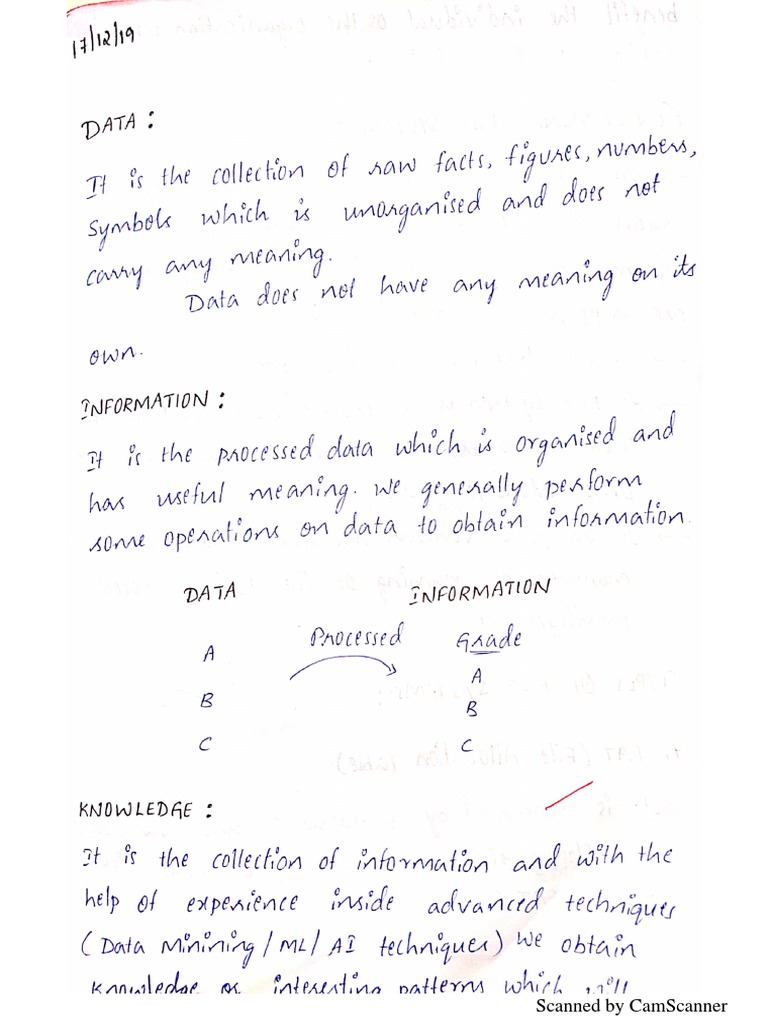 17/12/19
DATA :
It is the collection of raw facts, figures, numbers,
symbols which is unorganised and does not
carry any meaning.
Data does not have any meaning on its
own.
INFORMATION :
It is the processed data which is organised and
has useful meaning. We generally perform
some operations on data to obtain information
DATA INFORMATION
Processed Grade
A A
B B
C C
KNOWLEDGE :
It is the collection of information and with the
help of experience inside advanced techniques
(Data Minining / ML / AI techniques) we obtain
knowledge or interesting patterns which will
Scanned by CamScanner